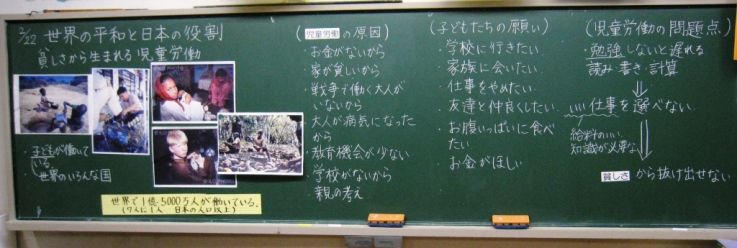 2/22 世界の平和と日本の役割
貧しさから生まれる児童労働
・子どもが働いて
いる
・世界のいろんな国
世界で1億5000万人が働いている。
(7人に1人 日本の人口以上)
(児童労働の原因)
・お金がないから
・家が貧しいから
・戦争で働く大人が
いないから
・大人が病気になった
から
・教育機会が少ない
・学校がないから
・親の考え
(子どもたちの願い)
・学校に行きたい.
・家族に会いたい.
・仕事をやめたい.
・友達と仲良くしたい.
・お腹いっぱいに食べ
たい
・お金がほしい
(児童労働の問題点)
・勉強しないと遅れる
読み・書き・計算
いい仕事を選べない.
給料のいい.
知識が必要な
貧しさから抜け出せない